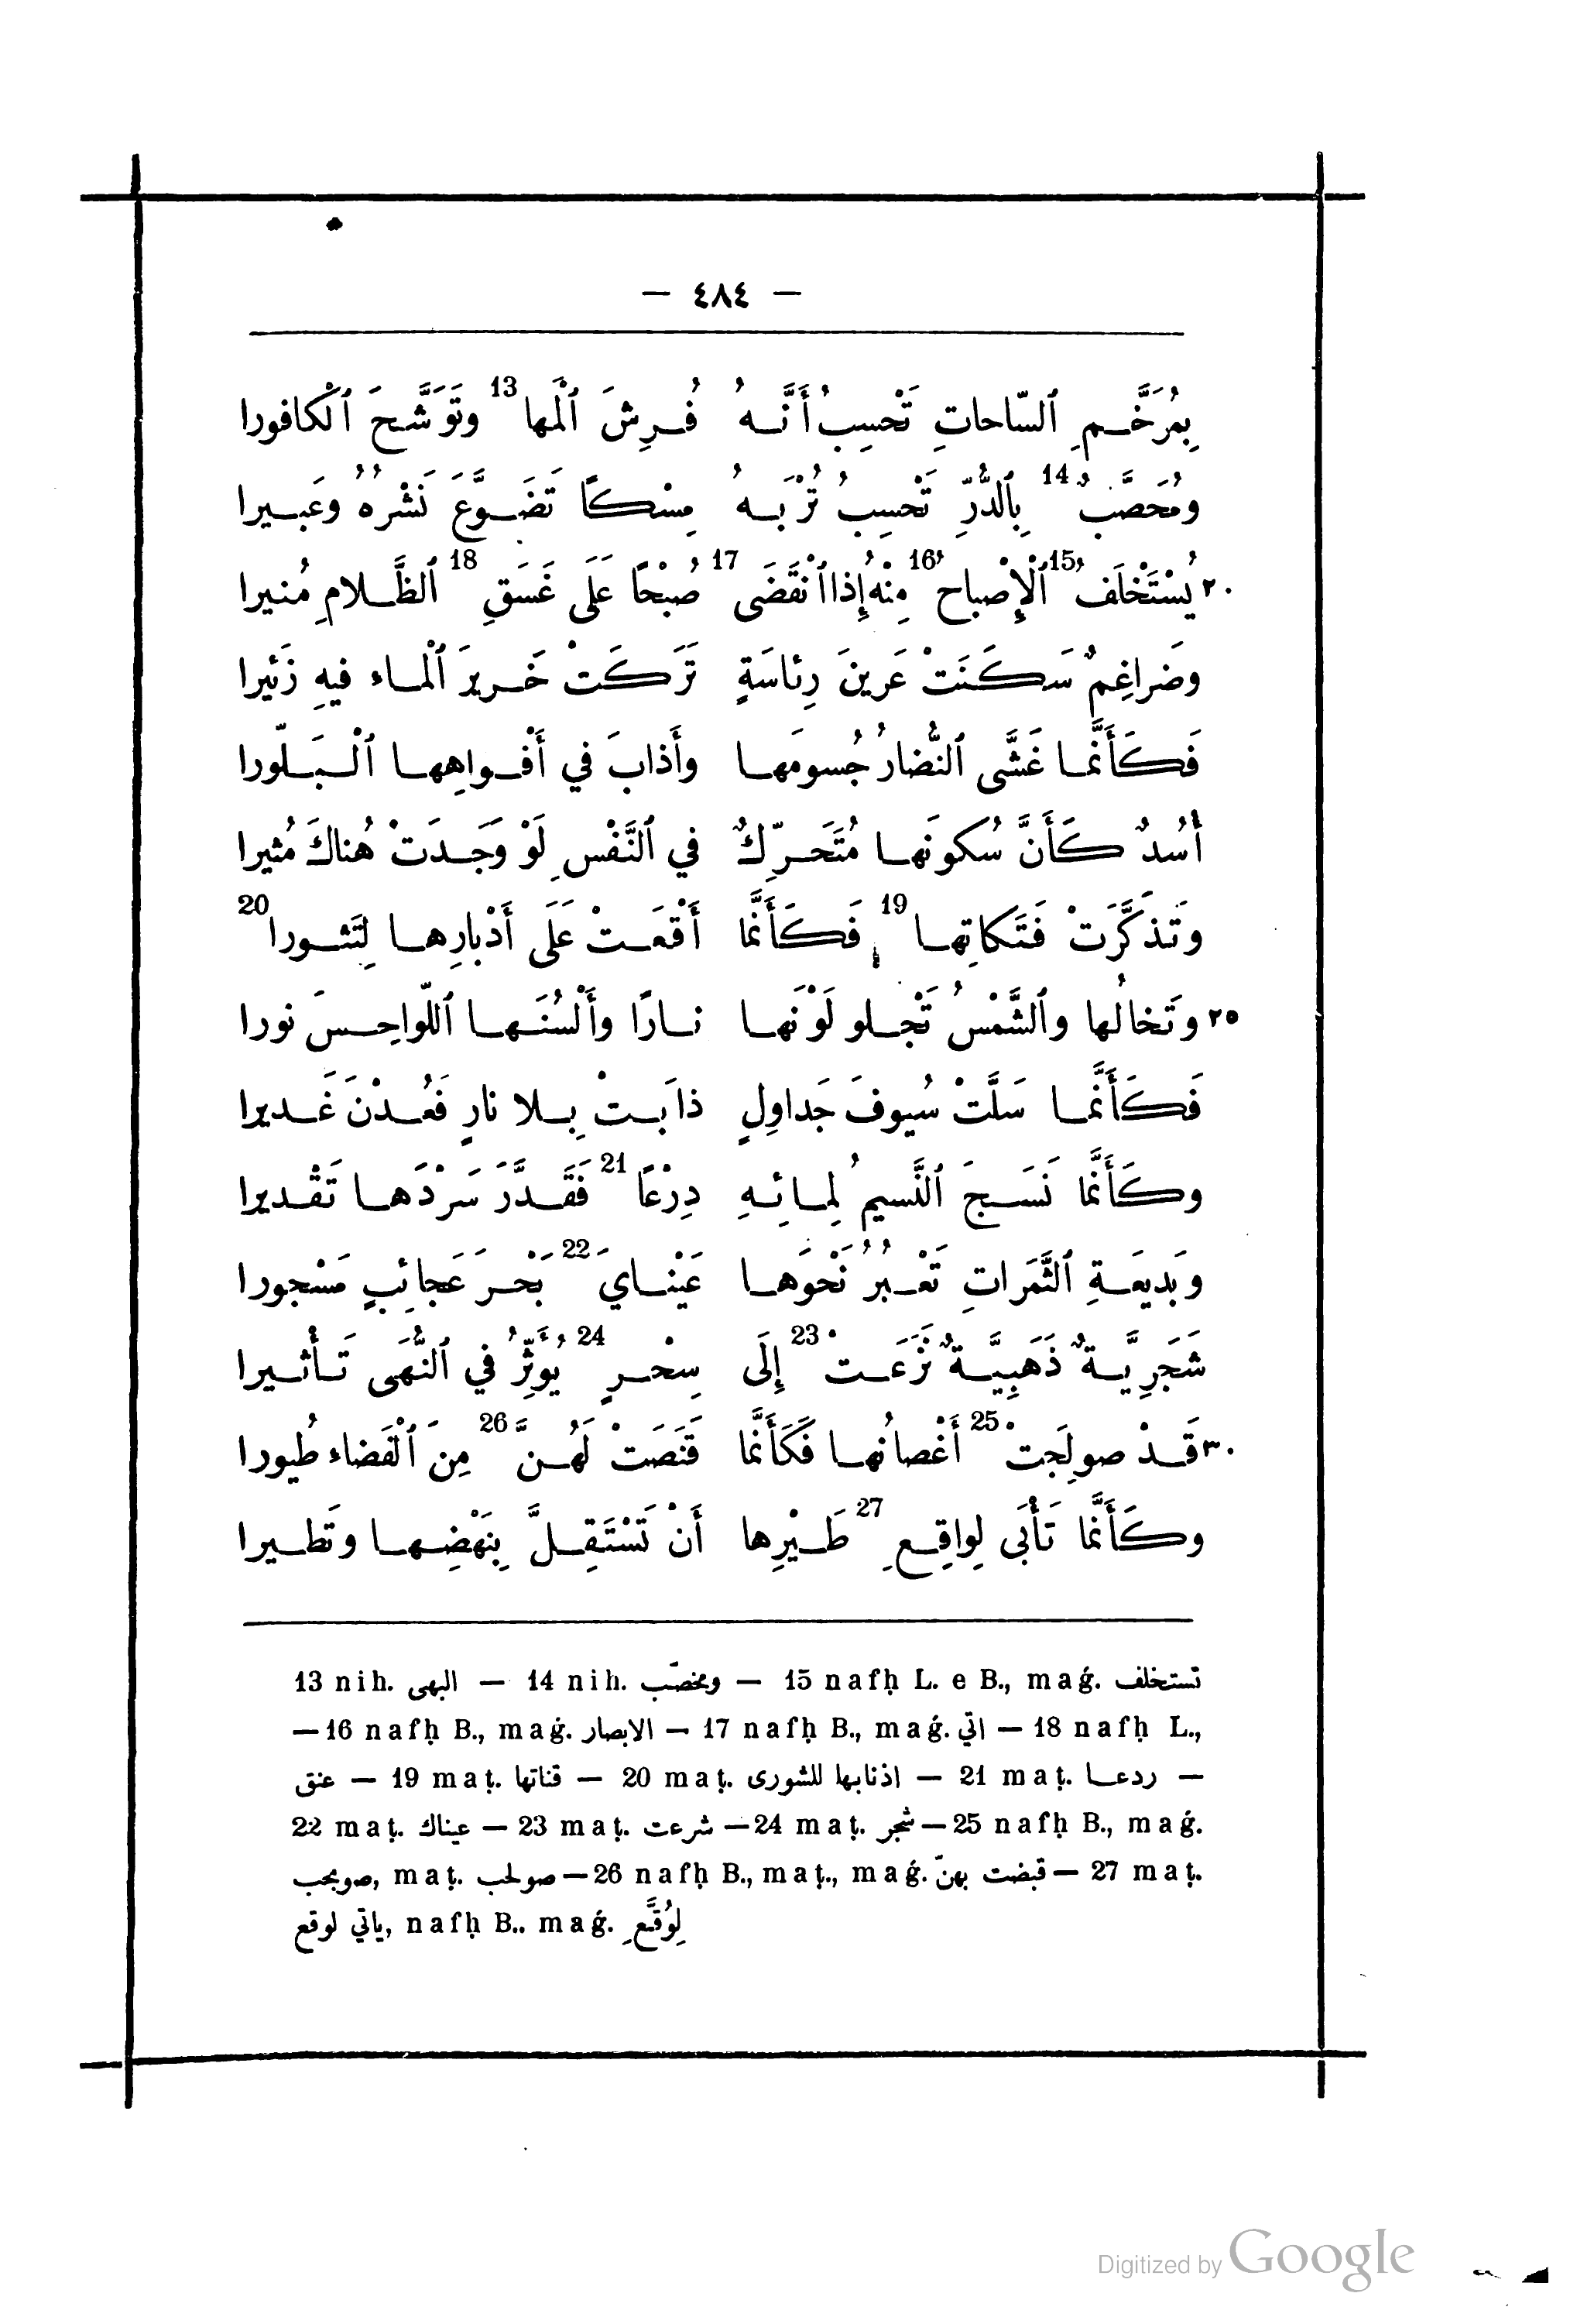 — ٤٨٤ —
بِمُرَخَّمِ ٱلسّاحاتِ تَحْسِبُ أَنَّهُ فُرِشَ ٱلْمَها13 وتَوَشَّحَ ٱلْكافورا
ومُحَصَّبٌ14 بِٱلدُّرِّ تَحْسِبُ تُرْبَهُ مِسْكًا تَضَوَّعَ نَشْرُهُ وعَبيرا
٢٠ يُسْتَخْلَفُ15 ٱلْإِصْباحُ16 مِنْهُ إِذا ٱنْقَضَى17 صُبْحًا عَلَى غَسَقِ18 ٱلظَّلامِ مُنيرا
وضَراغِمٌ سَكَنَتْ عَرينَ رِئاسَةٍ تَرَكَتْ خَريرَ ٱلْماء فيهِ زَئيرا
فَكَأَنَّما غَشَّى ٱلنُّضارُ جُسومَها وأَذابَ في أَفْواهِها ٱلْبَلّورا
أُسُدٌ كَأَنَّ سُكونَها مُتَحَرِّكٌ في ٱلنَّفْسِ لَوْ وَجَدَتْ هُناكَ مُثيرا
وتَذَكَّرَتْ فَتَكاتِها19 فَكَأَنَّما أَقْعَتْ عَلَى أَدْبارِها لِتَثورا20
٢٥ وتَخالُها وٱلشَّمْسُ تَجْلو لَوْنَها نارًا وأَلْسُنَها ٱللّواحِسَ نورا
فَكَأَنَّما سَلَّتْ سُيوفَ جَداوِلٍ ذابَتْ بِلا نارٍ فَعُدْنَ غَديرا
وكَأَنَّما نَسَجَ ٱلنَّسيمُ لِمائِهِ دِرْعًا21 فَقَدَّرَ سَرْدَها تَقْديرا
وبَديعَةِ ٱلثَّمَراتِ تَعْبُرُ نَحْوَها عَيْنايَ22 بَحْرَ عَجائِبٍ مَسْجورا
شَجَرِيَّةٌ ذَهَبِيَّةٌ نَزَعَتْ23 إِلَى سِحْرٍ24 يُوَثِّرُ في ٱلنُّهَى تَأْثيرا
٣٠ قَدْ صولِجَتْ25 أَغْصانُها فَكَأَنَّما قَنَصَتْ لَهُنَّ26 مِنَ ٱلْفَضاء طُيورا
وكَأَنَّما تَأْبَى لِواقِعِ27 طَيْرِها أَنْ تَسْتَقِلَّ بِنَهْضِها وتَطيرا
13 nih. البهى — 14 nih. ومخصّب — 15 nafḥ L. e B., maġ. تستخلف
— 16 nafḥ B., maġ. الابصار — 17 nafḥ B., maġ. اتي — 18 nafḥ L.,
عنق — 19 maṭ. قناتها — 20 maṭ. اذنابها للشورى — 21 maṭ. ردعا —
22 maṭ. عيناك — 23 maṭ. شرعت — 24 maṭ. شجر — 25 nafḥ B., maġ.
صوبحب, maṭ. صولحب — 26 nafḥ B., maṭ., maġ. قبضت بهنّ — 27 maṭ.
ياتي لوقع, nafḥ B.. maġ. لِوُقَّعِ
Digitized by Google